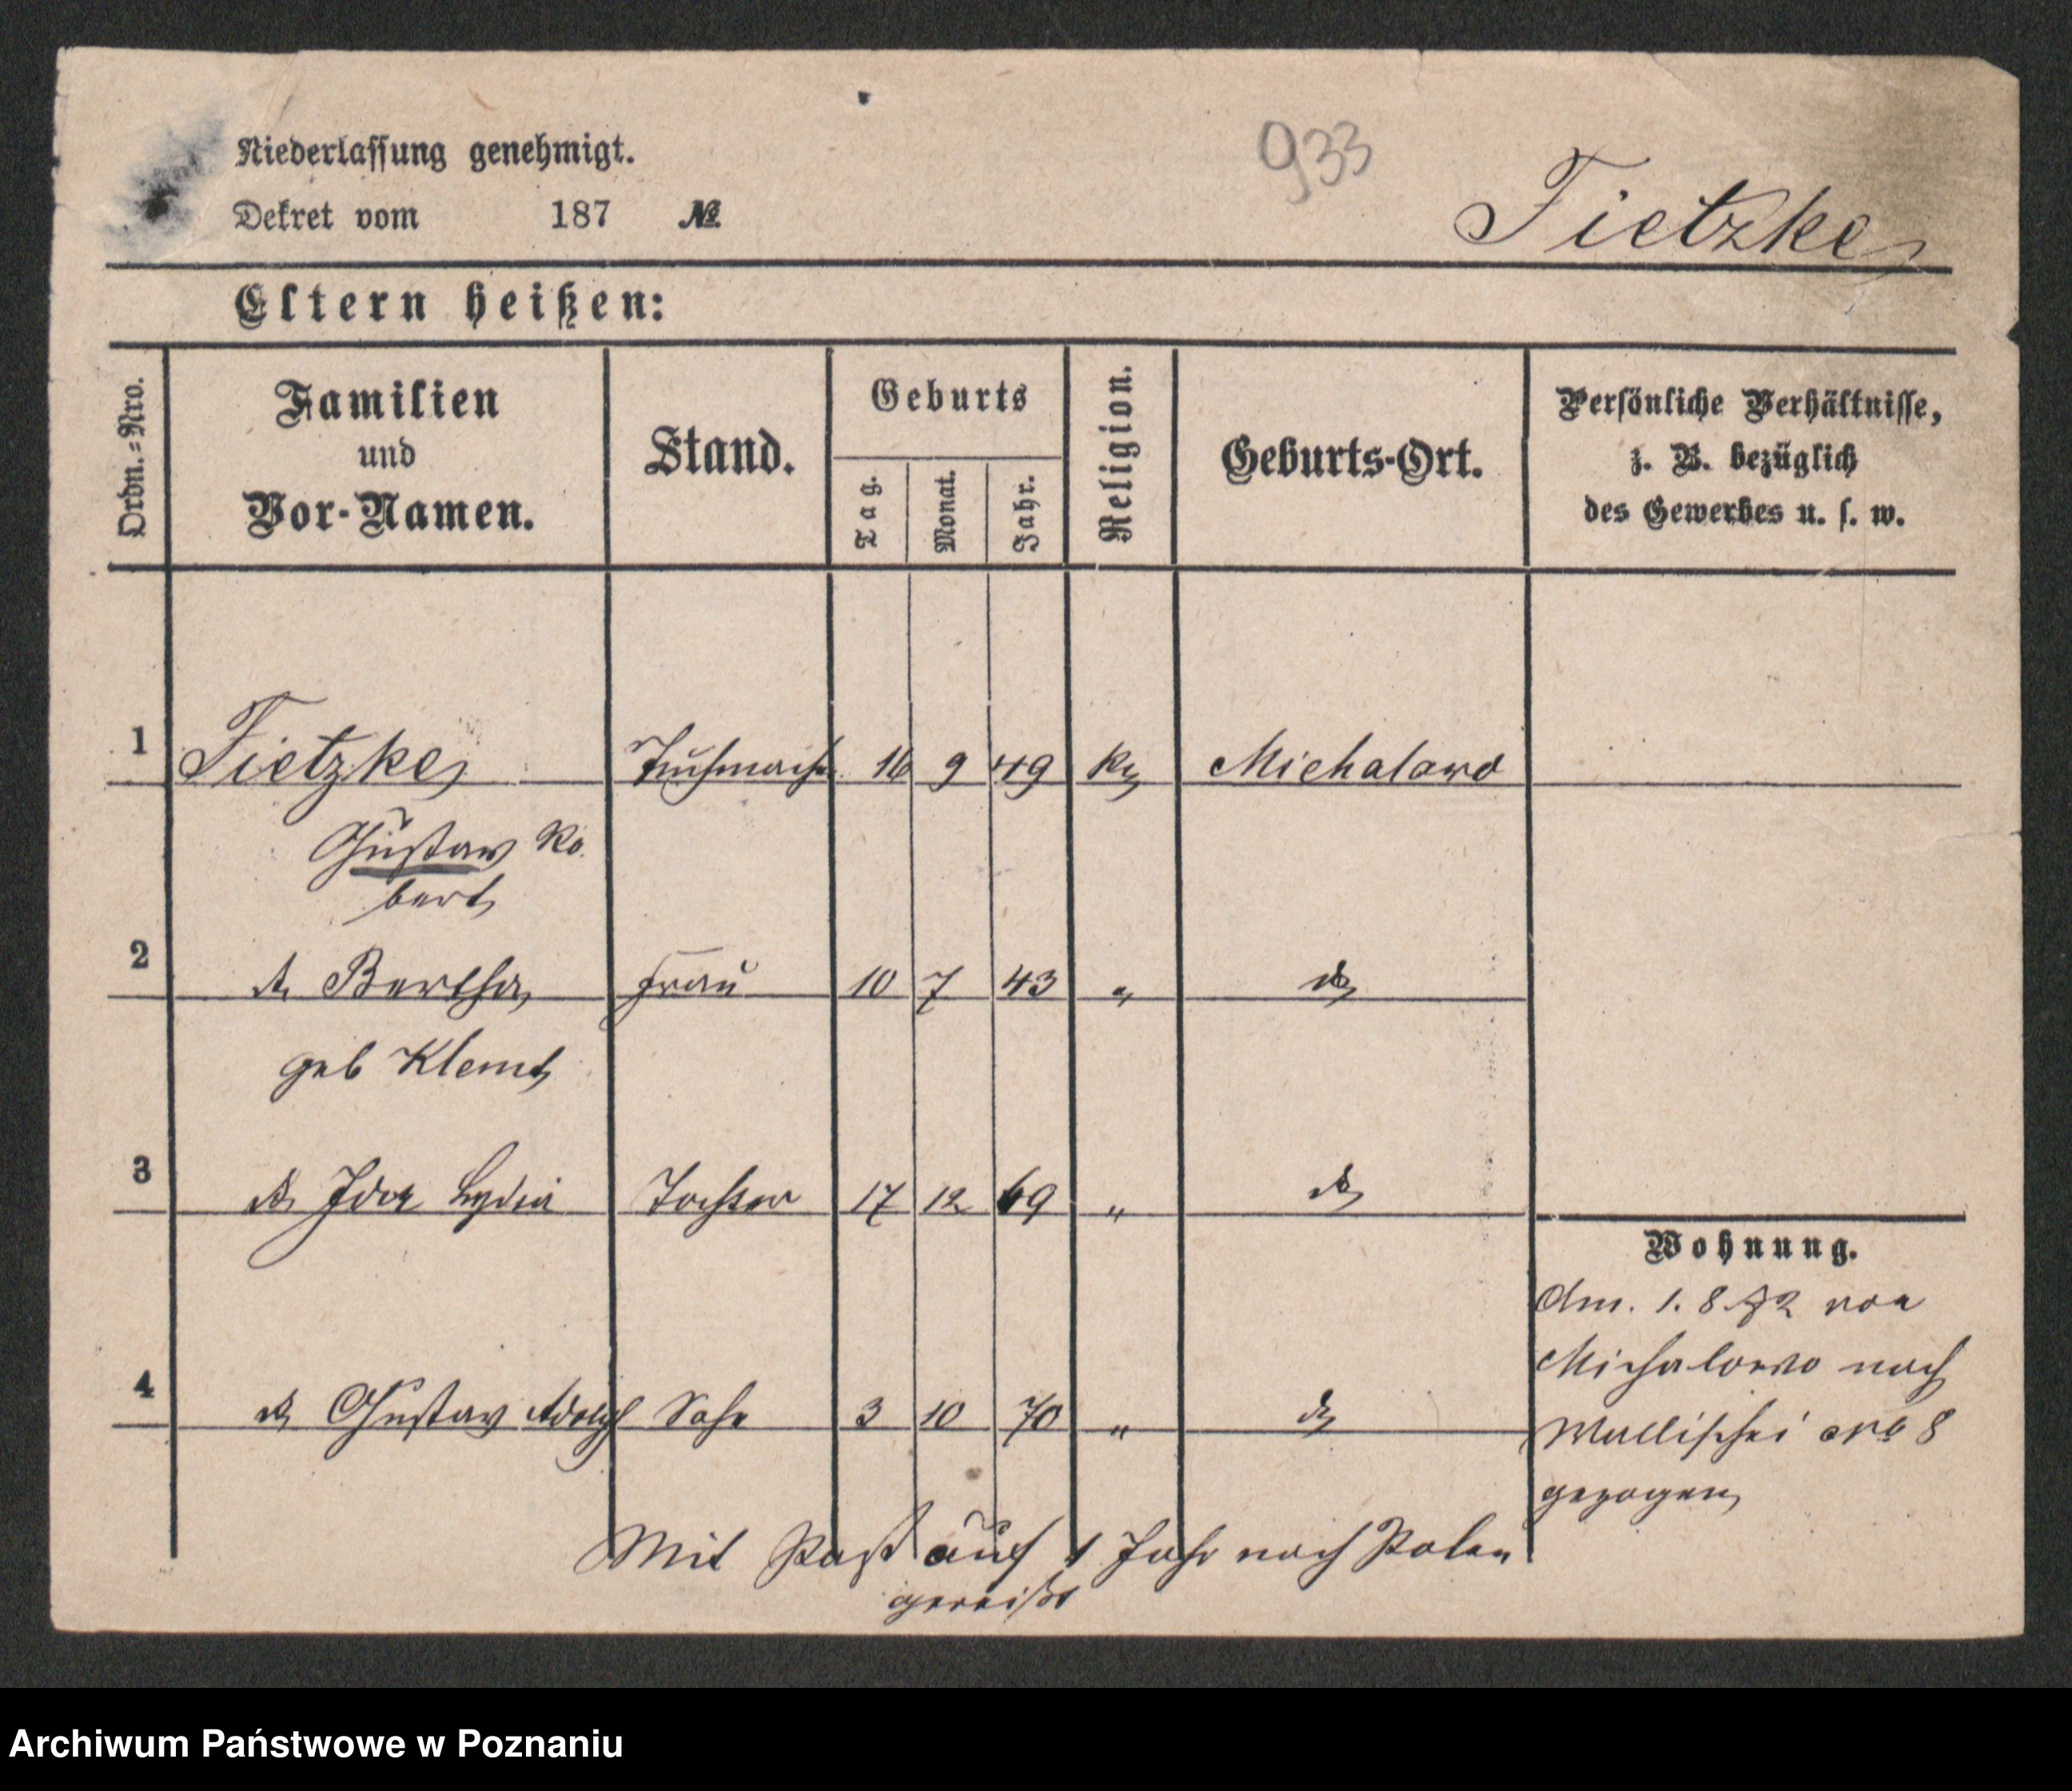 933
Niederlassung genehmigt.
Dekret vom 187 № Tietzke
Eltern heißen:
Ordn.-Nro. Familien und Vor-Namen. Stand. Geburts Tag. Monat. Jahr. Religion. Geburts-Ort. Persönliche Verhältnisse, z. B. bezüglich des Gewerbes u. s. w.
1 Tietzke Tuchmacher 16 9 49 Michalowo
Gustav Ro
bert
2 Bertha Frau 10 7 43 " do
geb Klemt
3 do Ida Lydia Tochter 17 12 69 " do
4 do Gustav Adolph Sohn 3 10 70 " do
Wohnung.
Am. 1. 8. 72 von
Michalowo nach
Wallischei No 8
gezogen
Mit Paß auf 1 Jahr nach Polen
gereist
Archiwum Państwowe w Poznaniu